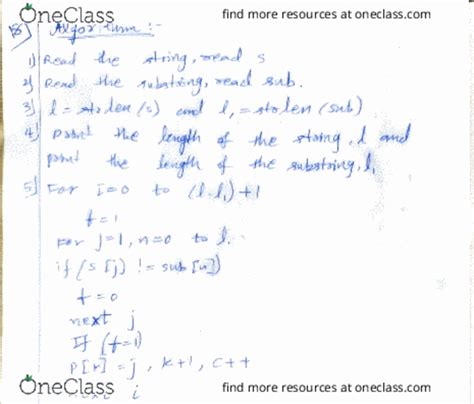 OneClass find more resources at oneclass.com
8) Algorithm :-
1) Read the string, read s
2) Read the substring, read sub.
3) l = strlen (s) and l₁ = strlen (sub)
4) print the length of the string, l and
print the length of the substring, l₁
5) For i=0 to (l-l₁)+1
f=1
For j=1, n=0 to l.
if (s[j] != sub[n])
f=0
next j
If (f=1)
P[k] = j, k+1, c++
OneClass find more resources at oneclass.com
next i